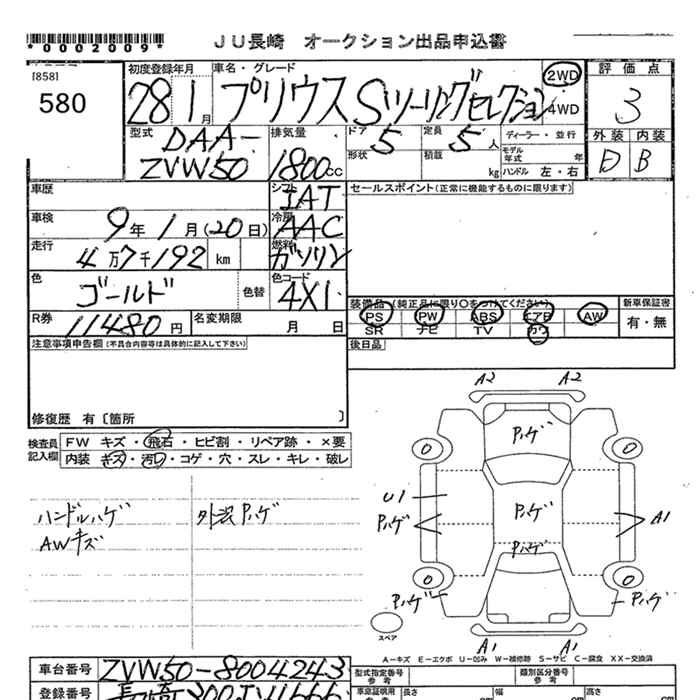 *0002009*
JU長崎 オークション出品申込書
[858]
580
初度登録年月
28 1月
車名・グレード
プリウス Sツーリングセレクション
2WD
4WD
評価点
3
型式
DAA-
ZVW50
排気量
1800cc
ドア
5
形状
定員
5人
積載
kg
ディーラー・並行
モデル年式 年
ハンドル 左・右
外装 内装
D B
車歴
シフト
IAT
セールスポイント(正常に機能するものに限ります)
車検
9年1月(20日)
冷房
AAC
走行
4万7千192 km
燃料
ガソリン
色
ゴールド
色替
色コード
4X1
R券
11480円
名変期限
月 日
装備品(純正品に限り○をつけてください)
PS PW ABS エアB AW
SR ナビ TV カワ
新車保証書
有・無
注意事項申告欄(不具合内容等は具体的に記入して下さい)
後日品
修復歴 有〔箇所 〕
検査員記入欄
FW キズ・飛石・ヒビ割・リペア跡・×要
内装 キズ・汚レ・コゲ・穴・スレ・キレ・破レ
ハンドルハゲ
AWキズ
外装Pハゲ
A2 A2
Pハゲ
0 0
U1
Pハゲ
Pハゲ
A1
Pハゲ
0 0
Pハゲ
Pハゲ
スペア
A1 A1
A-キズ E-エクボ U-凹み W-補修跡 S-サビ C-腐食 XX-交換済
車台番号
ZVW50-8004243
登録番号
型式指定番号
類別区分番号
参考
長さ
cm
幅
高さ